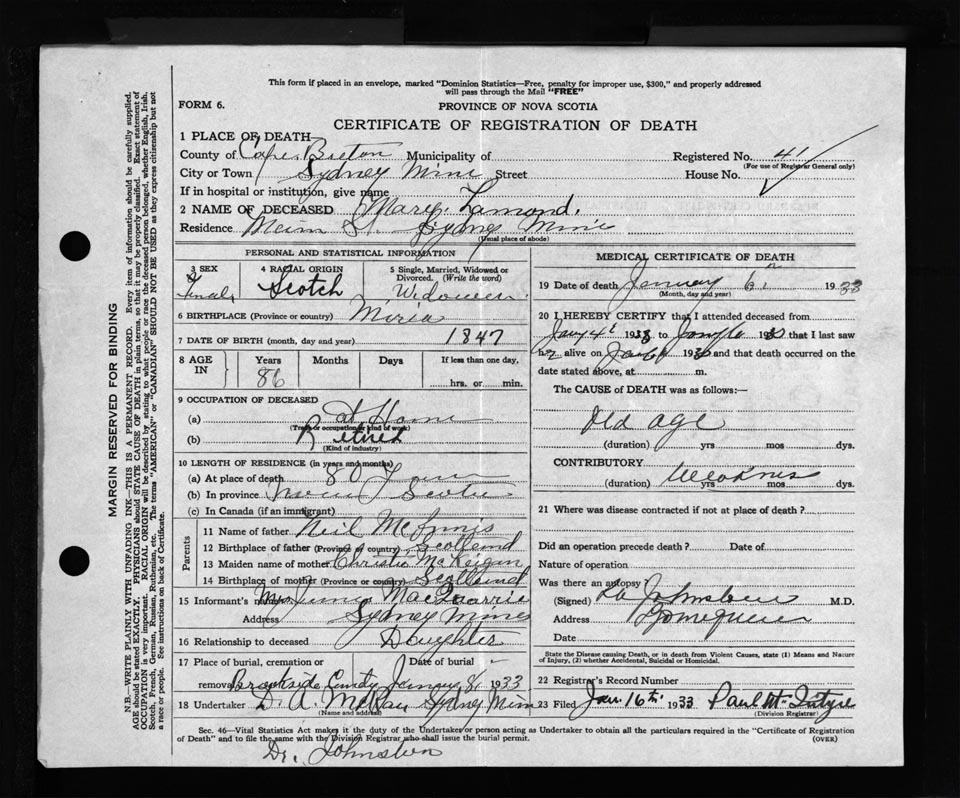 This form if placed in an envelope, marked "Dominion Statistics—Free, penalty for improper use, $300," and properly addressed
will pass through the Mail "FREE"
FORM 6.
PROVINCE OF NOVA SCOTIA
CERTIFICATE OF REGISTRATION OF DEATH
1 PLACE OF DEATH
County of Cape Breton Municipality of Registered No. 41
(For use of Registrar General only)
City or Town Sydney Mine Street House No.
If in hospital or institution, give name
2 NAME OF DECEASED Mary Lamond.
Residence Main St. Sydney Mine
(Usual place of abode)
PERSONAL AND STATISTICAL INFORMATION
3 SEX
Female
4 RACIAL ORIGIN
Scotch
5 Single, Married, Widowed or
Divorced. (Write the word)
6 BIRTHPLACE (Province or country) Mira
7 DATE OF BIRTH (month, day and year) 1847
8 AGE
IN
Years
86
Months
Days
If less than one day,
hrs. or min.
9 OCCUPATION OF DECEASED
(a) at Home
(Trade or occupation or kind of work)
(b) Retired
(Kind of industry)
10 LENGTH OF RESIDENCE (in years and months)
(a) At place of death 80 Years
(b) In province Nova Scotia
(c) In Canada (if an immigrant)
Parents
11 Name of father Neil McInnis
12 Birthplace of father (Province or country) Scotland
13 Maiden name of mother Christie McKeigan
14 Birthplace of mother (Province or country) Scotland
15 Informant's name Mrs MacQuarrie
Address Sydney Mines
16 Relationship to deceased Daughter
17 Place of burial, cremation or Date of burial
removal Brookside 8 1933
18 Undertaker D. A. Sydney Mine
(Name and address)
MEDICAL CERTIFICATE OF DEATH
19 Date of death January 6 1933
(Month, day and year)
20 I HEREBY CERTIFY that I attended deceased from
Jany 4 19 to 19 that I last saw
h alive on 19 and that death occurred on the
date stated above, at m.
The CAUSE of DEATH was as follows:—
Old age
(duration) yrs mos dys.
CONTRIBUTORY Weakness
(duration) yrs mos dys.
21 Where was disease contracted if not at place of death?
Did an operation precede death? Date of
Nature of operation
Was there an autopsy?
(Signed) Johnston M.D.
Address
Date
State the Disease causing Death, or in death from Violent Causes, state (1) Means and Nature
of Injury, (2) whether Accidental, Suicidal or Homicidal.
22 Registrar's Record Number
23 Filed Jan. 16th 1933 Paul McIntyre
(Division Registrar)
Sec. 46—Vital Statistics Act makes it the duty of the Undertaker or person acting as Undertaker to obtain all the particulars required in the "Certificate of Registration
of Death" and to file the same with the Division Registrar who shall issue the burial permit. (OVER)
Dr. Johnston
MARGIN RESERVED FOR BINDING
N.B.—WRITE PLAINLY WITH UNFADING INK—THIS IS A PERMANENT RECORD. Every item of information should be carefully supplied.
AGE should be stated EXACTLY. PHYSICIANS should STATE CAUSE OF DEATH in plain terms, so that it may be properly classified. Exact statement of
OCCUPATION is very important. RACIAL ORIGIN will be described by stating to what people or race the deceased person belonged, whether English, Irish,
Scotch, French, German, Russian, Ruthenian, etc. The terms "AMERICAN" or "CANADIAN" SHOULD NOT BE USED as they express citizenship but not
a race or people. See instructions on back of Certificate.